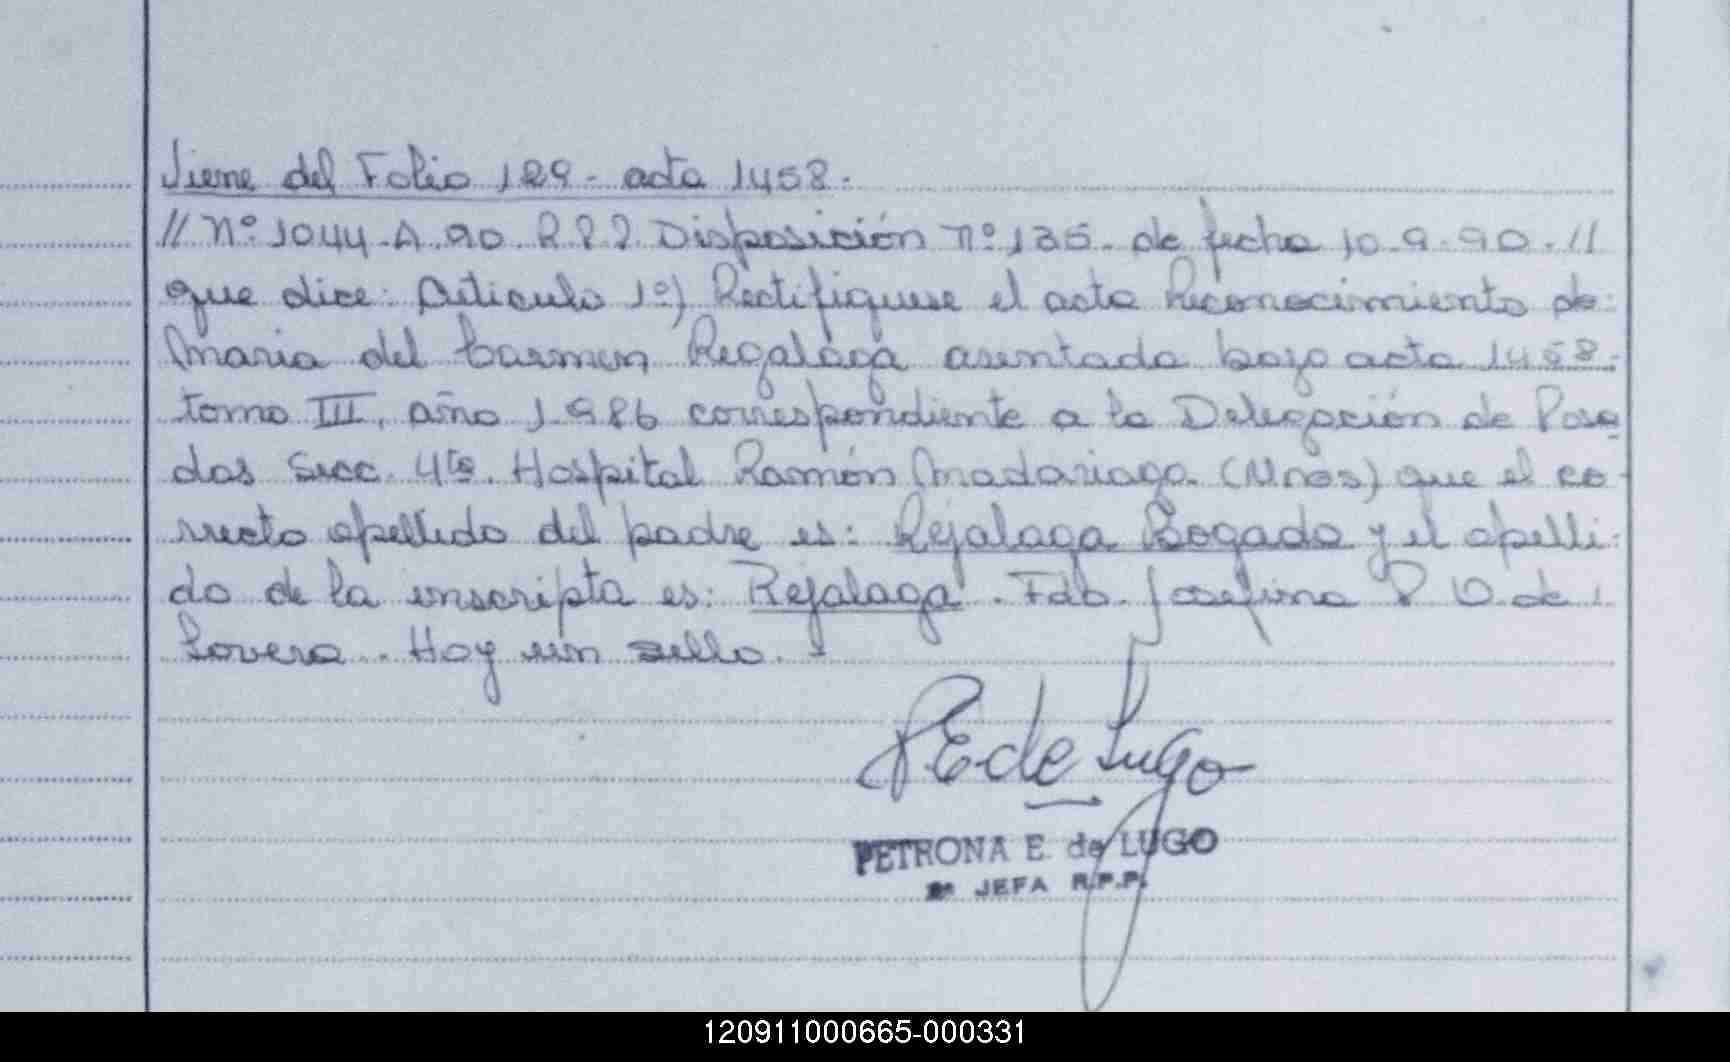 Viene del Folio 129 - acta 1458.
// Nº 1044-A-90. R.P.P. Disposición nº 135. de fecha 10-9-90. //
que dice: Articulo 1º) Rectifiquese el acta Reconocimiento de:
Maria del Carmen Regalaga asentada bajo acta 1458.
tomo III, año 1.986 correspondiente a la Delegación de Posa
das Secc. 4ta. Hospital Ramón Madariaga. (Mnes) que el co-
rrecto apellido del padre es: Rejalaga Bogado y el apelli-
do de la inscripta es: Rejalaga. Fdo. Josefina P. de
Lovera. Hay un sello.
PE de Lugo
PETRONA E. de LUGO
2ª JEFA R.P.P.
120911000665-000331